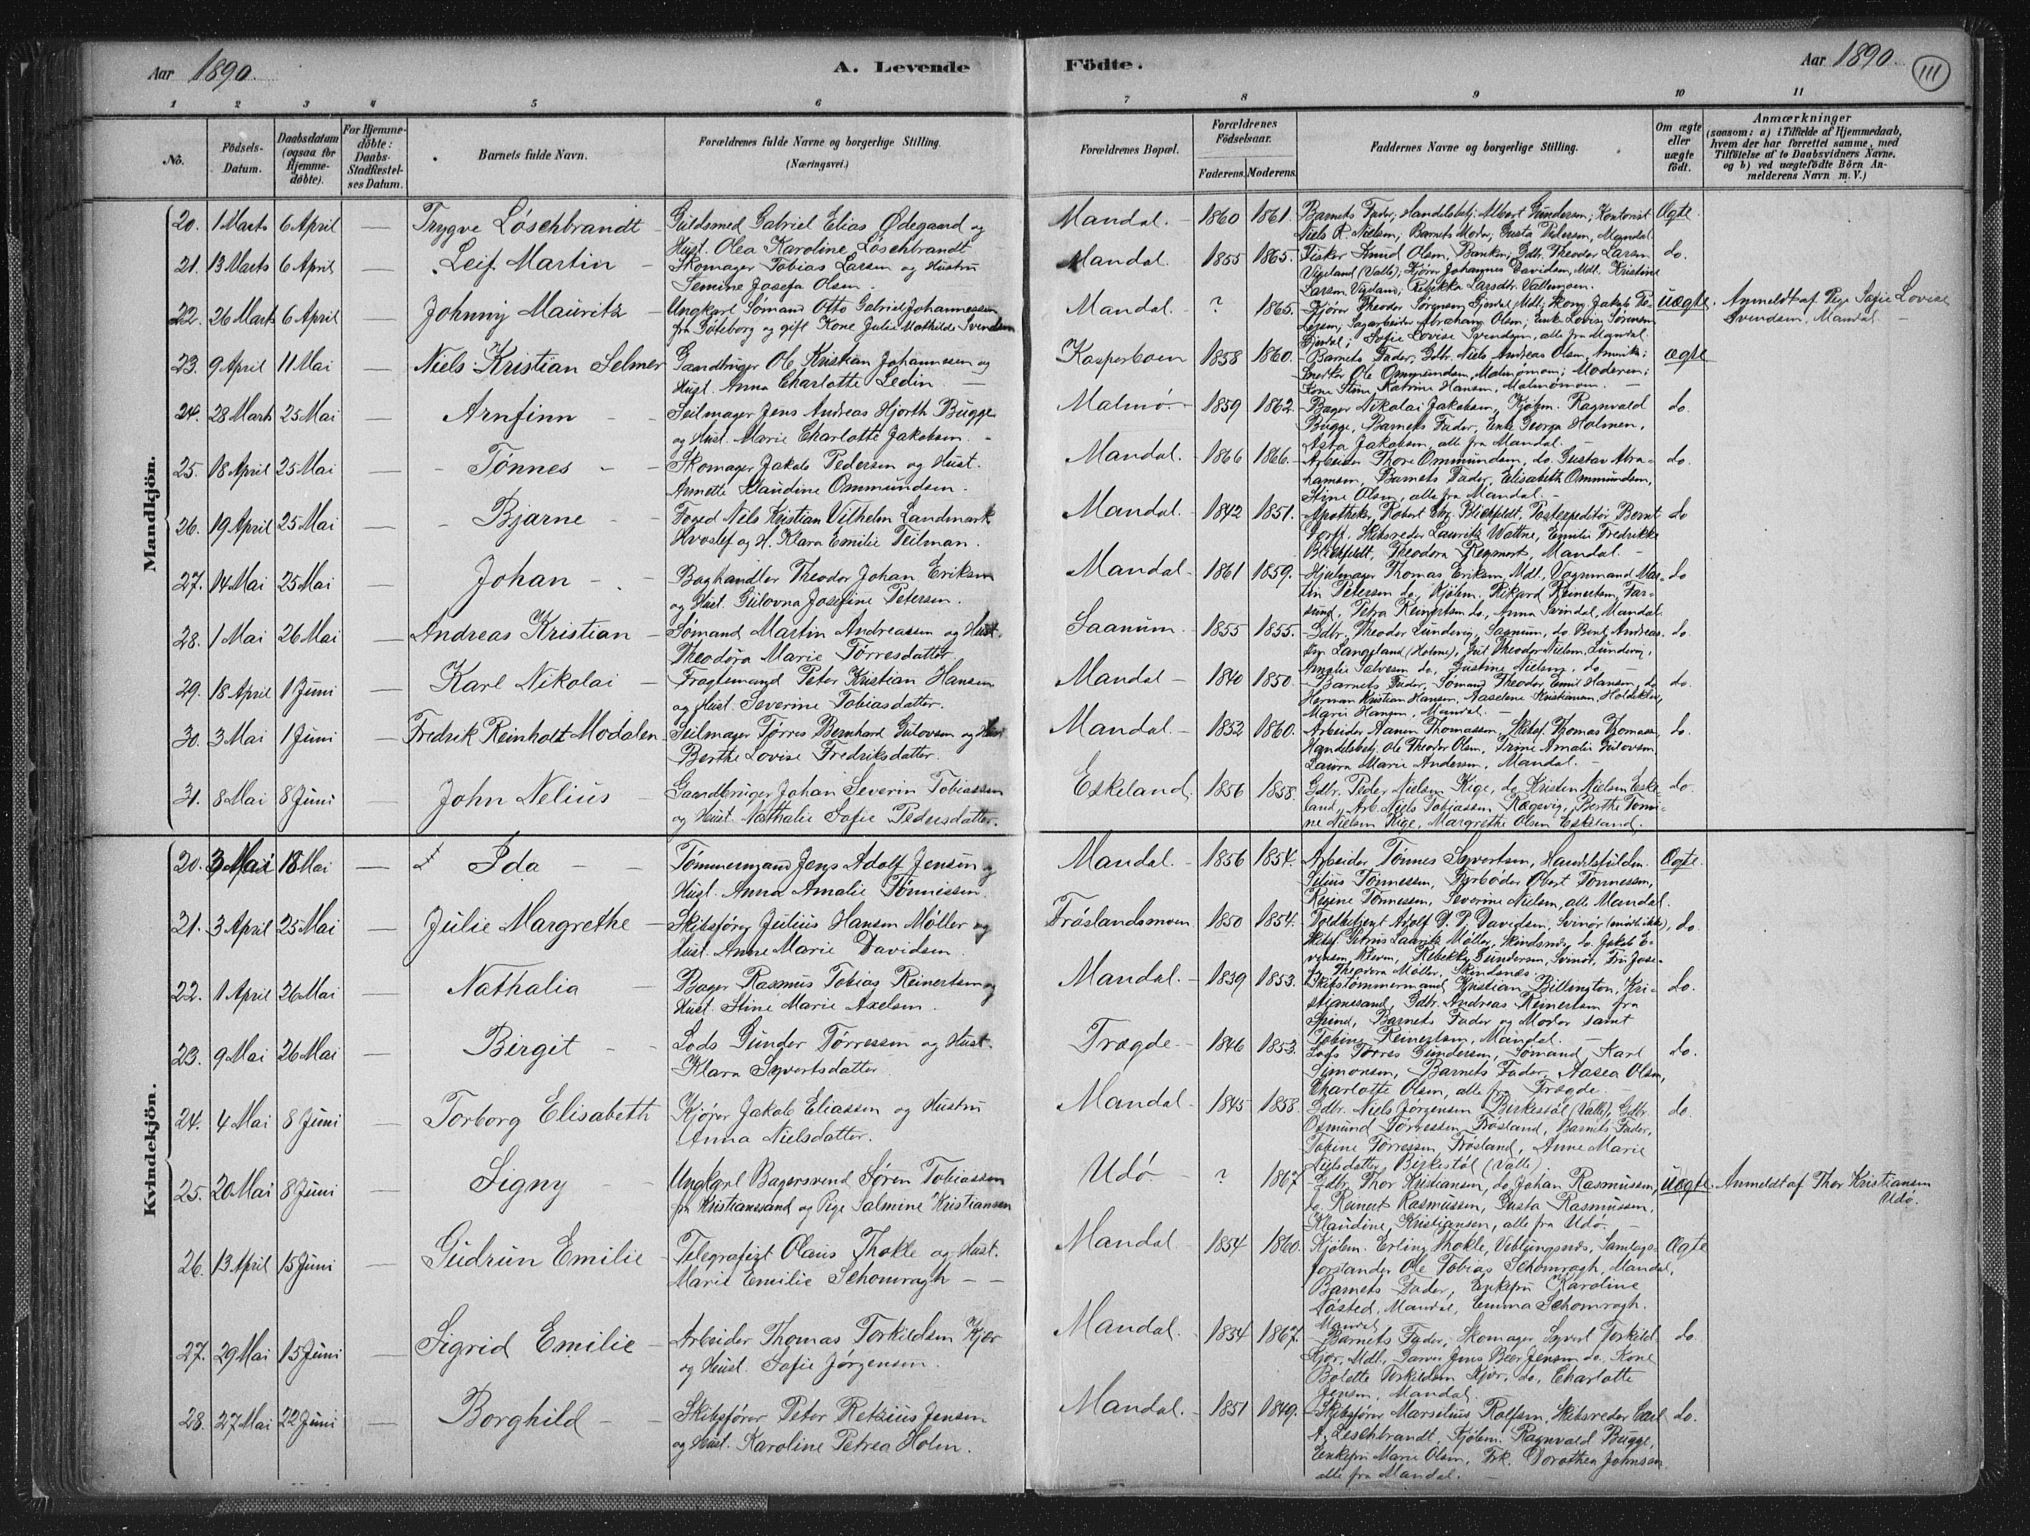 Aar 1890. A. Levende Födte. Aar 1890. 111
1 2 3 4 5 6 7 8 9 10 11
No. Födsels-Datum. Daabsdatum (ogsaa for Hjemmedöbte). For Hjemmedöbte: Daabs-Stadfestelses Datum. Barnets fulde Navn. Forældrenes fulde Navne og borgerlige Stilling. (Næringsvei.) Forældrenes Bopæl. Forældrenes Födselsaar. Faderens. Moderens. Faddernes Navne og borgerlige Stilling. Om ægte eller uægte födt. Anmærkninger (saasom: a) i Tilfælde af Hjemmedaab, hvem der har forrettet samme, med Tilföielse af to Daabsvidners Navne, og b) ved uægtefödte Börn Anmelderens Navn m. V.)
Mandkjön.
20. 1 Marts 6 April — Trygve Löschbrandt Guldsmed Gabriel Elias Ødegaard og Hust. Olea Karoline Löschbrandt Mandal. 1860 1861. Barnets Fader; Handelsbetj. Albert Gundersen; Kontorist Niels R. Nielsen; Barnets Moder; Gusta Pedersen, Mandal. Ægte
21. 13 Marts 6 April — Leif Martin Skomager Tobias Larsen og Hustru Temine Josefa Olsen. Mandal. 1855 1865. Fisker Knud Olsen, Banken; Gdbr. Theodor Larsen Vigeland (Valle); Kjører Johannes Davidsen, Mdl. Kristine Larsen Vigeland, Rebekka Larsdtr. do.
22. 26 Marts 6 April — Johnny Mauritz Ungkarl Sømand Otto Gabriel Johannessen fra Göteborg og gift Kone Julie Mathilde Svendsen Mandal. ? 1865. Kjører Theodor Sørensen Gjerdal, Mdl; Jakob Olsen; Abraham Olsen; Enke Lovise Sørensen Gjerdal; Sofie Lovise Svendsen, alle fra Mandal. Uægte Anmeldt af Pige Sofie Lovise Svendsen, Mandal
23. 9 April 11 Mai — Niels Kristian Selmer Gaardbruger Ole Kristian Johannesen og Hust. Anna Charlotte Ledin. 1858 1860. Barnets Fader, Gdbr. Niels Andreas Olsen, Snedker Ole Ommundsen, Malmømoen; Moderen; Kone Stine Katrine Hansen, Malmømoen. ægte
24. 28 Marts 25 Mai — Arnfinn Seilmager Jens Andreas Hjorth Bugge og Hust. Marie Charlotte Jakobsen. Malmø. 1859 1862. Bager Nikolai Jakobsen, Kjøbm. Ragnvald Bugge, Barnets Fader, Enke Georga Holmen, Asra Jakobsen, alle fra Mandal. do.
25. 18 April 25 Mai — Tønnes Skomager Jakob Pedersen og Hust. Annette Klaudine Ommundsen. Mandal. 1866 1866. Arbeider Thore Ommundsen, do. Gustav Abrahamsen, Barnets Fader, Elisabeth Ommundsen, Stine Olsen, alle fra Mandal. do.
26. 19 April 25 Mai — Bjarne Foged Nils Kristian Vilhelm Landmark Hvoslef og H. Klara Emilie Teilman. Mandal. 1842 1851. Apotheker Robert Chr. Blichfeldt, Postexpeditør Bernt Dorff, Skibsreder Lauritz Wattne, Emilie Fredrikke Blichfeldt, Theodora Mandal. do
27. 14 Mai 25 Mai — Johan Boghandler Theodor Johan Eriksen og Hust. Gulovna Josefine Petersen. Mandal. 1861 1859. Hjulmager Thomas Eriksen, Mdl., Vognmand Martin Petersen do, Kjøbm. Rikard Reinertsen, Farsund, Petra Reinertsen do, Anna Svindal, Mandal. do
28. 1 Mai 26 Mai — Andreas Kristian Sømand Martin Andreassen og Hust. Theodora Marie Tørresdatter. Saanum 1855 1855. Gdbr. Theodor Lundevig, Saanum, do Bent Andreas Langeland (Holme), Theodor Nielsen, Lundevig, Amalie Salvesen do, Gustine Nielsen, do do.
29. 18 April 1 Juni — Karl Nikolai Fragtemand Peter Kristian Hansen og Hust. Severine Tobiasdatter. Mandal 1840 1850. Barnets Fader, Sømand Theodor Emil Hansen, do Herman Kristian Hansen, Aaselene Kristiansen, Marie Hansen, Mandal. do.
30. 3 Mai 1 Juni — Fredrik Reinholt Modalen Seilmager Tørres Bernhard Gulovsen og Hust Berthe Lovise Fredriksdatter. Mandal 1852 1860. Arbeider Aanen Thomassen, Skibsf. Thomas Thomassen, Handelsbetj. Ole Theodor Olsen, Trine Amalie Gulovsen, Laura Marie Andersen, Mandal. do.
31. 8 Mai 8 Juni — John Nelius Gaardbruger Johan Severin Tobiassen og Hust. Nathalie Sofie Pedersdatter. Eskeland 1856 1858. Gdbr. Peder Nielsen Kige, do Kristen Nielsen Eskeland, Arb. Niels Tobiassen Rægevig, Berthe Tomine Nielsen Kige, Margrethe Olsen Eskeland. do.
Kvindekjön.
20. 3 Mai 18 Mai — Ida Tömmermand Jens Adolf Jensen og Hust. Anna Amalie Tønnessen. Mandal. 1856 1854. Arbeider Tønnes Syvertsen, Handelsfuldm. Silius Tønnessen, Fyrbøder Obert Tønnessen, Regine Tønnessen, Severine Nielsen, alle Mandal. Ægte
21. 3 April 25 Mai — Julie Margrethe Skibsfører Julius Hansen Møller og Hust. Anne Marie Davidsen. Frøslandsmoen 1850 1854. Toldbetjent Adolf D. P. Davidsen, Svinør Skibsf. Petrus Lauritz Møller, Skindsnæs, do. Jakob Evensen, Rebekka Gundersen, Svinør, Fru Josefa Theodora Møller, Skindsnæs. do.
22. 1 April 26 Mai — Nathalia Bager Rasmus Tobias Reinertsen og Hust. Stine Marie Axelsen. Mandal. 1839 1853. Skibstømmermand Kristian Billington, Kristianssand, Gdbr. Andreas Reinertsen fra Spind, Barnets Fader og Moder samt Tobine Reinertsen, Mandal. do.
23. 9 Mai 26 Mai — Birgit Lods Gunder Tørressen og Hust. Klara Syvertsdatter. Trægde 1846 1853. Lods Tørres Gundersen, Sømand Karl Simonsen, Barnets Fader, Aasea Olsen, Charlotte Olsen, alle fra Trægde. do.
24. 4 Mai 8 Juni — Torborg Elisabeth Kjører Jakob Eliassen og Hustru Anna Nielsdatter. Mandal 1845 1858. Gdbr. Niels Jørgensen Birkestøl (Valle), Gdbr. Osmund Tørressen Frøsland, Barnets Fader, Tobine Tørressen, Frøsland, Anne Marie Nielsdatter, Birkestøl (Valle) do.
25. 20 Mai 8 Juni — Signy Ungkarl Bagersvend Søren Tobiassen fra Kristianssand og Pige Salmine Kristiansen Udø. ? 1867 Gdbr. Thor Kristiansen, do Johan Rasmussen, do. Reinert Rasmussen, Gusta Rasmussen, Klaudine Kristiansen, alle fra Udø. Uægte. Anmeldt af Thor Kristiansen Udø.
26. 13 April 15 Juni — Gudrun Emilie Telegrafist Olaus Thokle og Hust. Marie Emilie Schomragh Mandal. 1854 1860. Kjøbm. Erling Thokle, Veblungsnæs, Samlagsforstander Ole Tobias Schomragh, Mandal, Barnets Fader, Enkefru Karoline Nøsted, Mandal, Emma Schomragh. Mandal Ægte
27. 29 Mai 15 Juni — Sigrid Emilie Arbeider Thomas Torkildsen Kjør og Hust. Sofie Jørgensen. Mandal. 1854 1867. Barnets Fader, Skomager Syvert Torkild. Kjør, Mdl., Garver Jens Beer Jensen do. Kone Bolette Torkildsen Kjør, do, Charlotte Jensen, Mandal. do.
28. 27 Mai 22 Juni — Borghild Skibsfører Peter Retzius Jensen og Hust. Karoline Petrea Holm. Mandal. 1851 1849. Skibsfører Marsilius Rolfsen, Skibsreder Carl A. Leschbrandt, Kjøbm. Ragnvald Bugge, Enkefru Marie Olsen, Frk. Dorothea Johnsen alle fra Mandal. do.